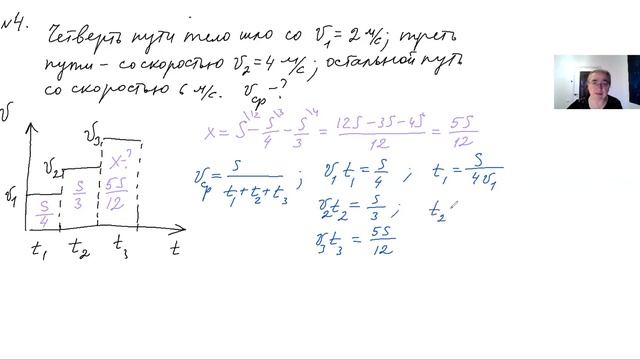 №4. Четверть пути тело шло со v₁ = 2 м/с; треть
пути – со скоростью v₂ = 4 м/с; остальной путь
со скоростью 6 м/с. v_ср – ?
v
v₃
v₂
v₁
S/4
S/3
x-?
5S/12
t₁ t₂ t₃ t
x = S\12 – S/4\3 – S/3\4 = (12S – 3S – 4S)/12 = 5S/12
v_ср = S/(t₁ + t₂ + t₃) ; v₁t₁ = S/4 ; t₁ = S/(4v₁)
v₂t₂ = S/3 ; t₂
v₃t₃ = 5S/12